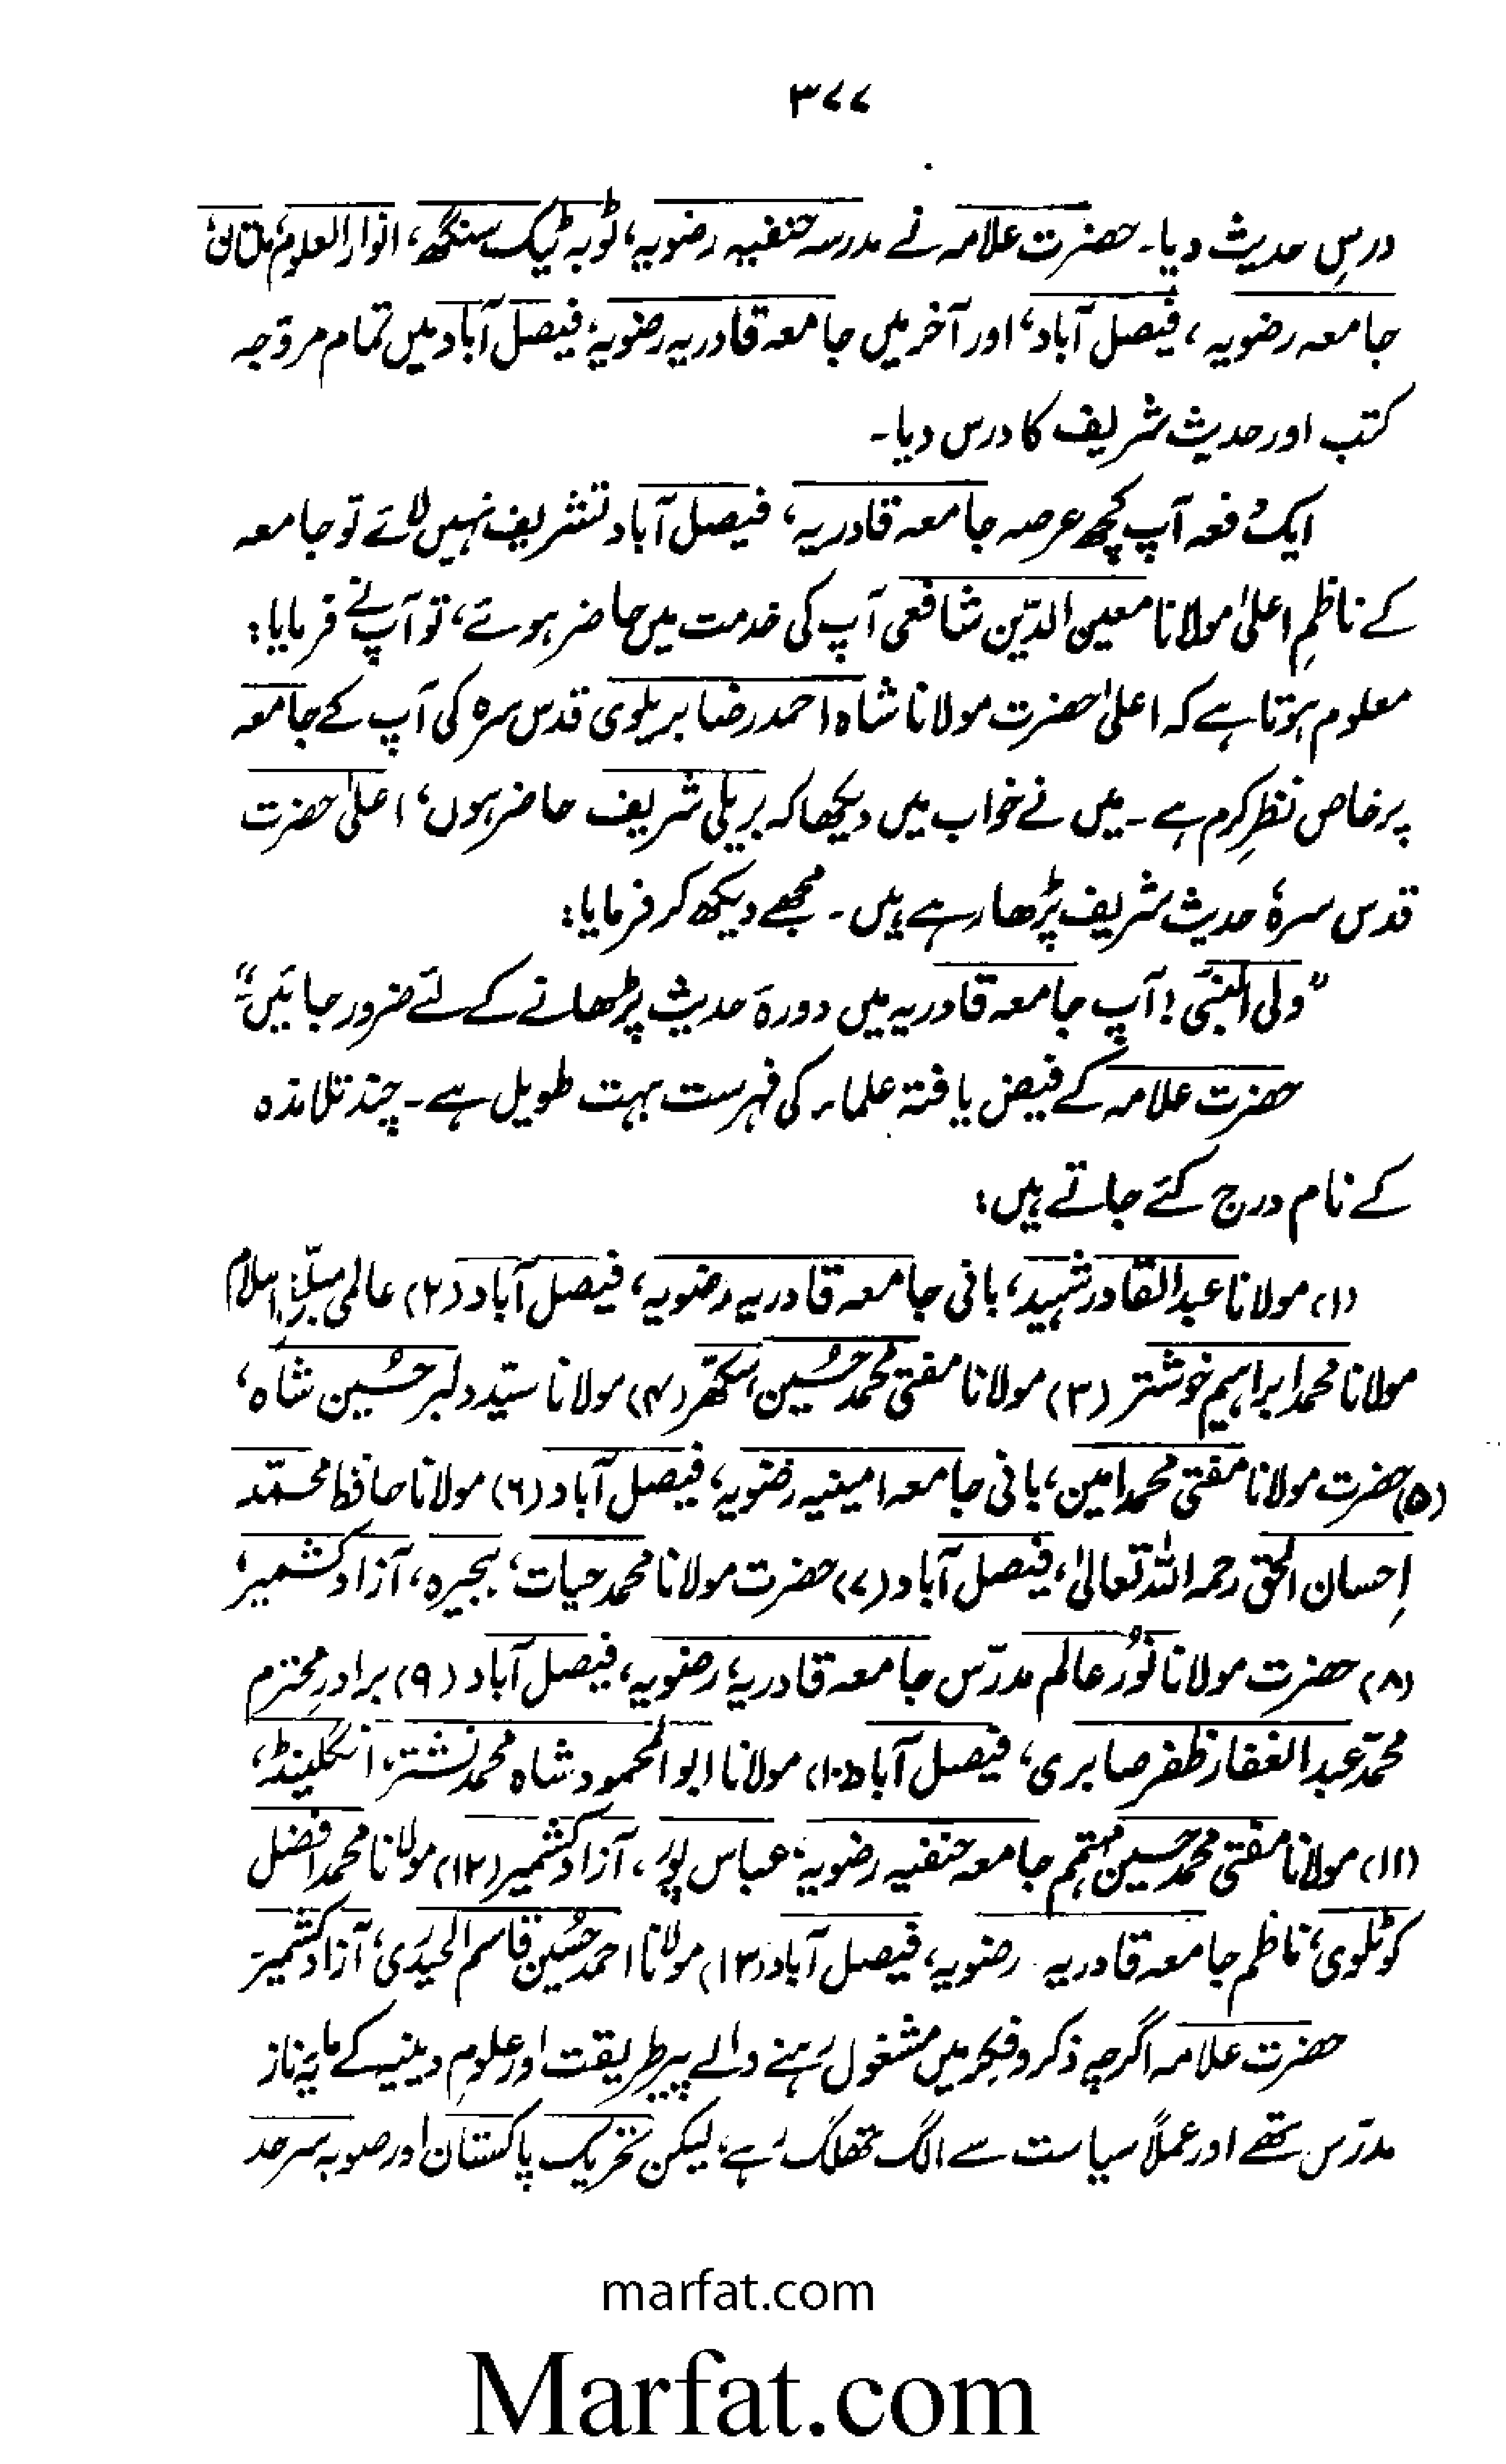 ۳۷۷
درسِ حدیث دیا۔ حضرت علامہ نے مدرسہ حنفیہ رضویہ، ٹوبہ ٹیک سنگھ، انوار العلوم، ملتان
جامعہ رضویہ، فیصل آباد، اور آخر میں جامعہ قادریہ رضویہ، فیصل آباد میں تمام مروّجہ
کتب اور حدیث شریف کا درس دیا۔
ایک دفعہ آپ کچھ عرصہ جامعہ قادریہ، فیصل آباد تشریف نہیں لائے تو جامعہ
کے ناظمِ اعلیٰ مولانا معین الدّین شافعی آپ کی خدمت میں حاضر ہوئے، تو آپ نے فرمایا:
معلوم ہوتا ہے کہ اعلیٰ حضرت مولانا شاہ احمد رضا بریلوی قدس سرہ کی آپ کے جامعہ
پر خاص نظرِ کرم ہے۔ میں نے خواب میں دیکھا کہ بریلی شریف حاضر ہوں، اعلیٰ حضرت
قدس سرہٗ حدیث شریف پڑھا رہے ہیں۔ مجھے دیکھ کر فرمایا:
"ولی النبی! آپ جامعہ قادریہ میں دورۂ حدیث پڑھانے کے لئے ضرور جائیں۔"
حضرت علامہ کے فیض یافتہ علماء کی فہرست بہت طویل ہے۔ چند تلامذہ
کے نام درج کئے جاتے ہیں:
(۱) مولانا عبدالقادر شہید، بانی جامعہ قادریہ رضویہ، فیصل آباد (۲) عالمی مبلّغِ اسلام
مولانا محمد ابراہیم خوشتر (۳) مولانا مفتی محمد حُسین، سکھّر (۴) مولانا سیّد دلبر حُسین شاہ،
(۵) حضرت مولانا مفتی محمد امین، بانی جامعہ امینیہ رضویہ، فیصل آباد (۶) مولانا حافظ محمّد
اِحسان الحق رحمہ اللہ تعالیٰ، فیصل آباد (۷) حضرت مولانا محمد حیات، ہجیرہ، آزاد کشمیر،
(۸) حضرت مولانا نُور عالم مدرّس جامعہ قادریہ، رضویہ، فیصل آباد (۹) برادرِ محترم
محمّد عبدالغفار ظفر صابری، فیصل آباد (۱۰) مولانا ابوالمحمود شاہ محمد نشتر، انگلینڈ،
(۱۱) مولانا مفتی محمد حسین مہتمم جامعہ حنفیہ رضویہ، عباس پور، آزاد کشمیر (۱۲) مولانا محمد افضل
کوٹلوی، ناظم جامعہ قادریہ رضویہ، فیصل آباد (۱۳) مولانا احمد حُسین قاسم الحیدری، آزاد کشمیر
حضرت علامہ اگرچہ ذکر و فکر میں مشغول رہنے والے پیرِ طریقت اور علومِ دینیہ کے مایۂ ناز
مدرّس تھے اور عملاً سیاست سے الگ تھلگ رہے، لیکن تحریک پاکستان اور صوبہ سرحد
marfat.com
Marfat.com